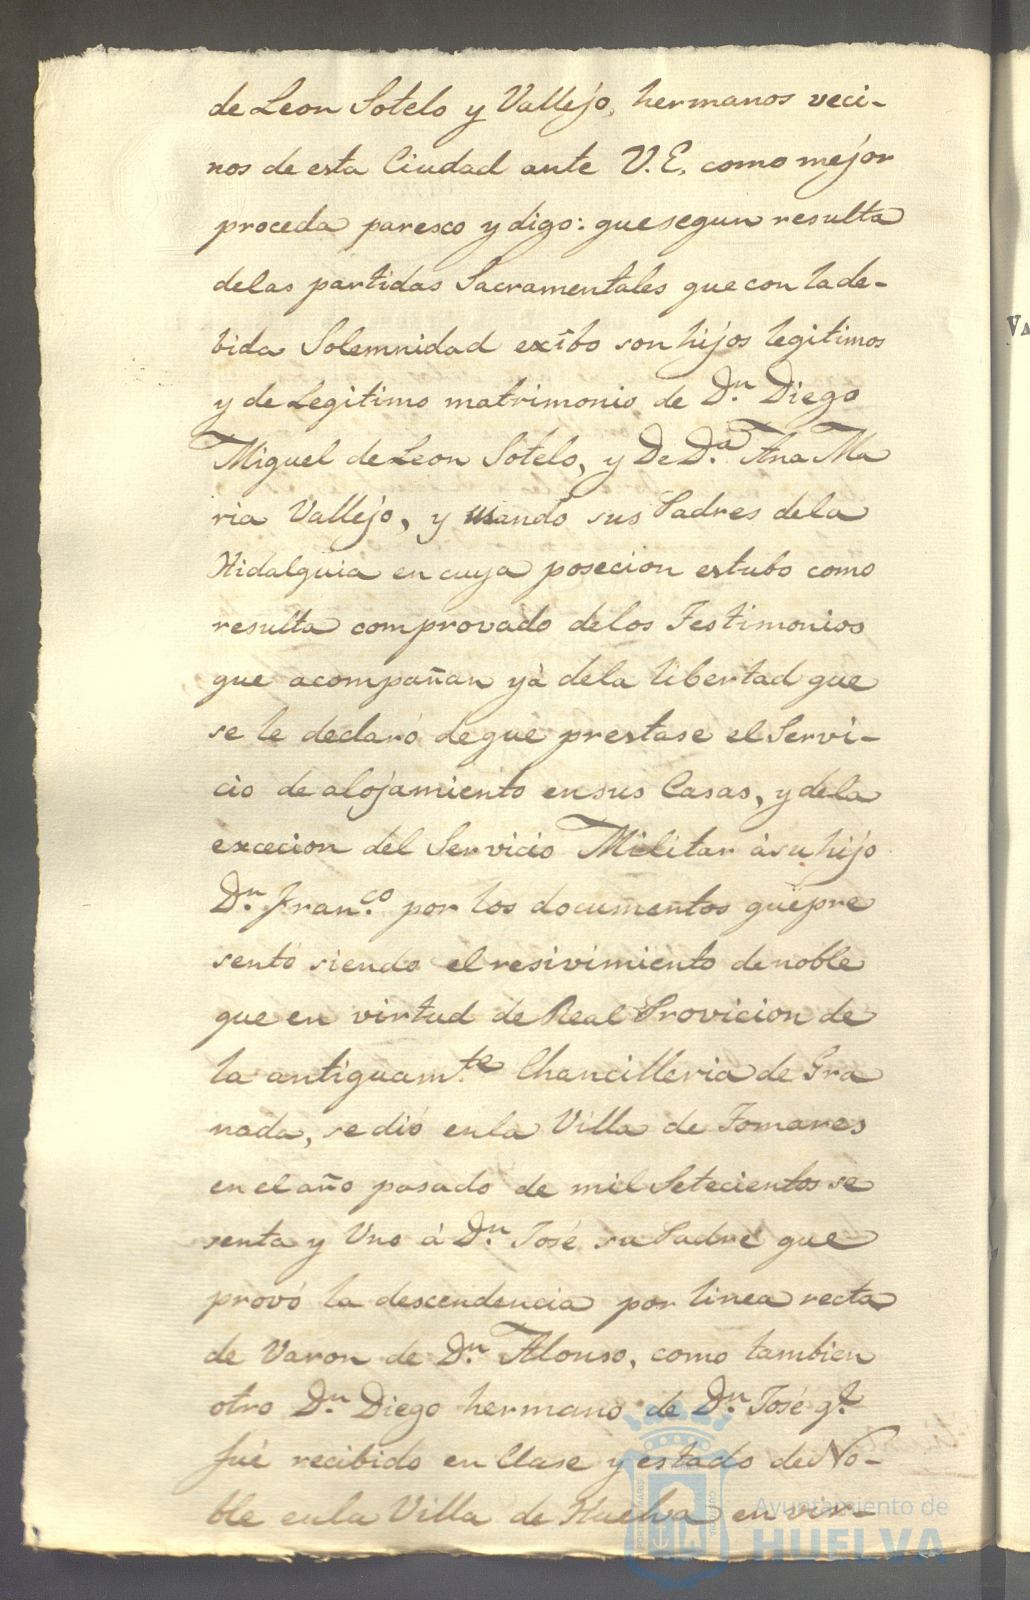 de Leon Sotelo y Vallejo, hermanos veci-
nos de esta Ciudad ante V.E. como mejor
proceda paresco y digo: que segun resulta
delas partidas Sacramentales que con la de-
bida Solemnidad exîbo son hijos legitimos
y de Legitimo matrimonio de Dn. Diego
Miguel de Leon Sotelo, y De Da. Ana Ma
ria Vallejo, y usando sus Padres dela
Hidalguia en cuya posecion estubo como
resulta comprovado delos Testimonios
que acompañan yà dela libertad que
se le declaró de que prestase el Servi-
cio de alojamiento en sus Casas, y dela
excecion del Servicio Militar à su hijo
Dn. Franco. por los documentos que pre
sentó siendo el resivimiento de noble
que en virtud de Real Provicion de
la antiguamte. Chancilleria de Gra
nada, se dió enla Villa de Tomares
en el año pasado de mil Setecientos se
senta y Uno à Dn. José su Padre que
provó la descendencia por linea recta
de Varon de Dn. Alonso, como tambien
otro Dn. Diego hermano de Dn. José qe.
fué recibido en Clase y estado de No-
ble enla Villa de Huelva en vir-
Va
Ayuntamiento de
HUELVA